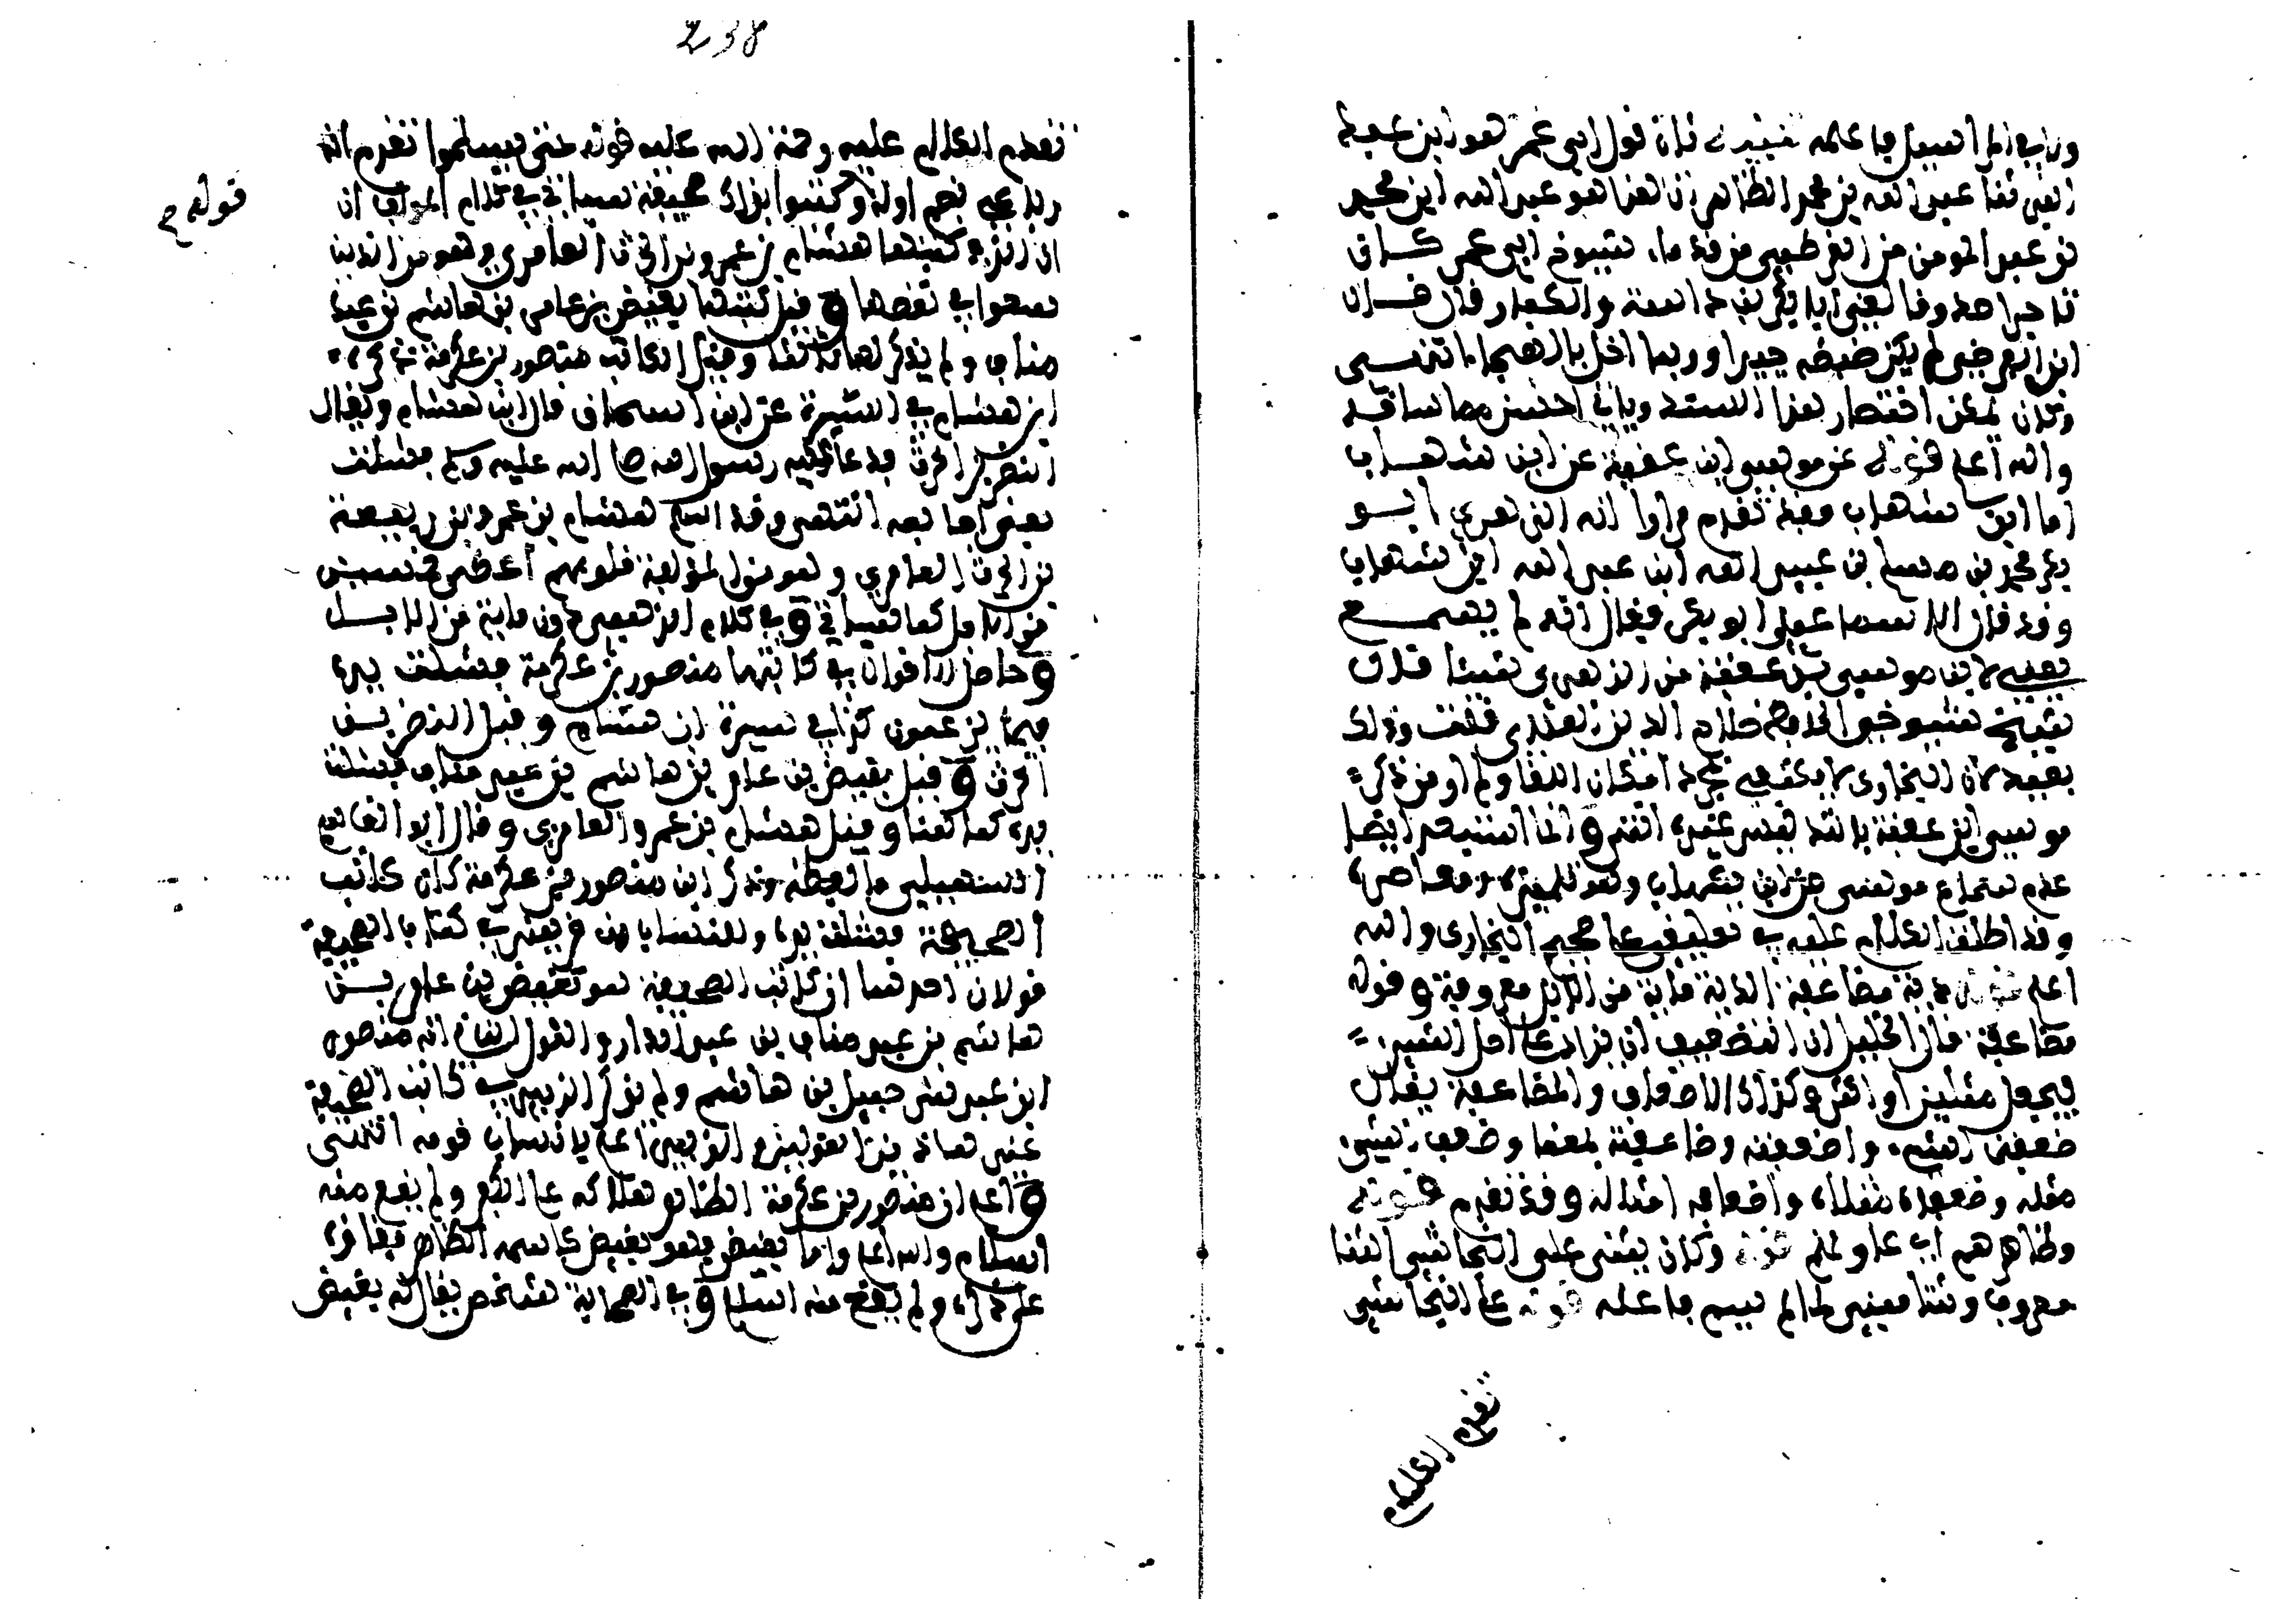 العبر ثنا عبد الله بن محمد الظاهر ان هذا هو عبد الله ابن محمد
بن عبد المومن من القرطبي من قدما شيوخ ابي عمر كان
تاجرا صدوقا لقي ابا بكر بن داسة والكبار قال
ابن الفرضي لم يكن ضبطه جيدا وربما اخل بالهجاء انتهى
وكان يمكن اختصار هذا السند وياتي احسن مما ساقه
والله اعلم قوله عن موسى ابن عقبة عن ابن شهاب
اما ابن شهاب فقد تقدم مرارا انه الزهري ابو
بكر محمد بن مسلم بن عبيد الله ابن عبد الله ابن شهاب
وقد قال الاسماعيلي ابو بكر فيقال انه لم يسمع
يعني موسى بن عقبة من الزهري شيئا قال
شيخ شيوخي الحافظ صلاح الدين العلائي قلت وذلك
بعيد لان البخاري لا يكتفي بمجرد امكان اللقا ولم ار من ذكر
موسى ابن عقبة بالتدليس غيره انتهى وانما استبعد ايضا
عدم سماع موسى من ابن شهاب وهو تلميذه ومعاصره
وقد اطلت الكلام عليه في تعليقي على صحيح البخاري والله
اعلم قوله دية مضاعفة الدية ماية من الابل معروفة وقوله
مضاعفة قال الخليل ان التضعيف ان يزاد على اصل الشيء
فيجعل مثلين او اكثر وكذلك الاضعاف والمضاعفة يقال
ضعفت الشيء واضعفته وضاعفته بمعنا وضعف الشيء
مثله وضعفاه مثلاه واضعافه امثاله وقد تقدم قوله
وظاهرهم اي عاونهم قوله وكان يثني على النجاشي الثنا
معروف ويثنا مبني لما لم يسم فاعله قوله على النجاشي
تقدم الكلام
238
تقدم الكلام عليه ورحمة الله عليه قوله حتى يسلموا تقدم انه
رباعي بضم اوله وكتبوا بذلك صحيفة سياتي في كلام المولف ان
ان الذي كتبها هشام بن عمرو بن الحرث العامري وهو من الذين
سعوا في نقضها وقيل كتبها بغيض بن عامر بن هاشم بن عبد
مناف ولم يذكر لها ثالثا وقيل الكاتب منصور بن عكرمة ذكره
ابن هشام في السيرة عن ابن اسحاق قال ابن هشام ويقال
النضر بن الحرث فدعا عليه رسول الله صلى الله عليه وسلم فشلت
بعض اصابعه انتهى وقد اسلم هشام بن عمرو بن ربيعة
بن الحرث العامري وهو من المولفة قلوبهم اعطي خمسين
من الابل كما سياتي وفي كلام الزهري دون ماية من الابل
وحاصل الاقوال في كاتبها منصور بن عكرمة فشلت يده
فيما يزعمون كذا في سيرة ابن هشام وقيل النضر بن
الحرث وقيل بغيض بن عامر بن هاشم بن عبد مناف فشلت
يده كما هنا وقيل هشام بن عمرو العامري وقال ابو القاسم
السهيلي ما لفظه وذكر ابن منصور بن عكرمة كان كاتب
الصحيفة فشلت يده وللنساب من قريش في كاتب الصحيفة
قولان احدهما ان كاتب الصحيفة هو بغيض بن عامر بن
هاشم بن عبد مناف بن عبد الدار والقول الثاني انه منصور
ابن عبد شرحبيل بن هاشم ولم يذكر الزبير في كاتب الصحيفة
غير هاذين القولين والزبيريون اعلم بانساب قومه انتهى
واعلم ان منصور بن عكرمة الظاهر هلاكه على الكفر ولم يقع منه
اسلام والله اعلم واما بغيض فهو بغيض كاسمه الظاهر
ولم يقع منه اسلام وفي الصحابة شخص يقال له بغيض
قوله